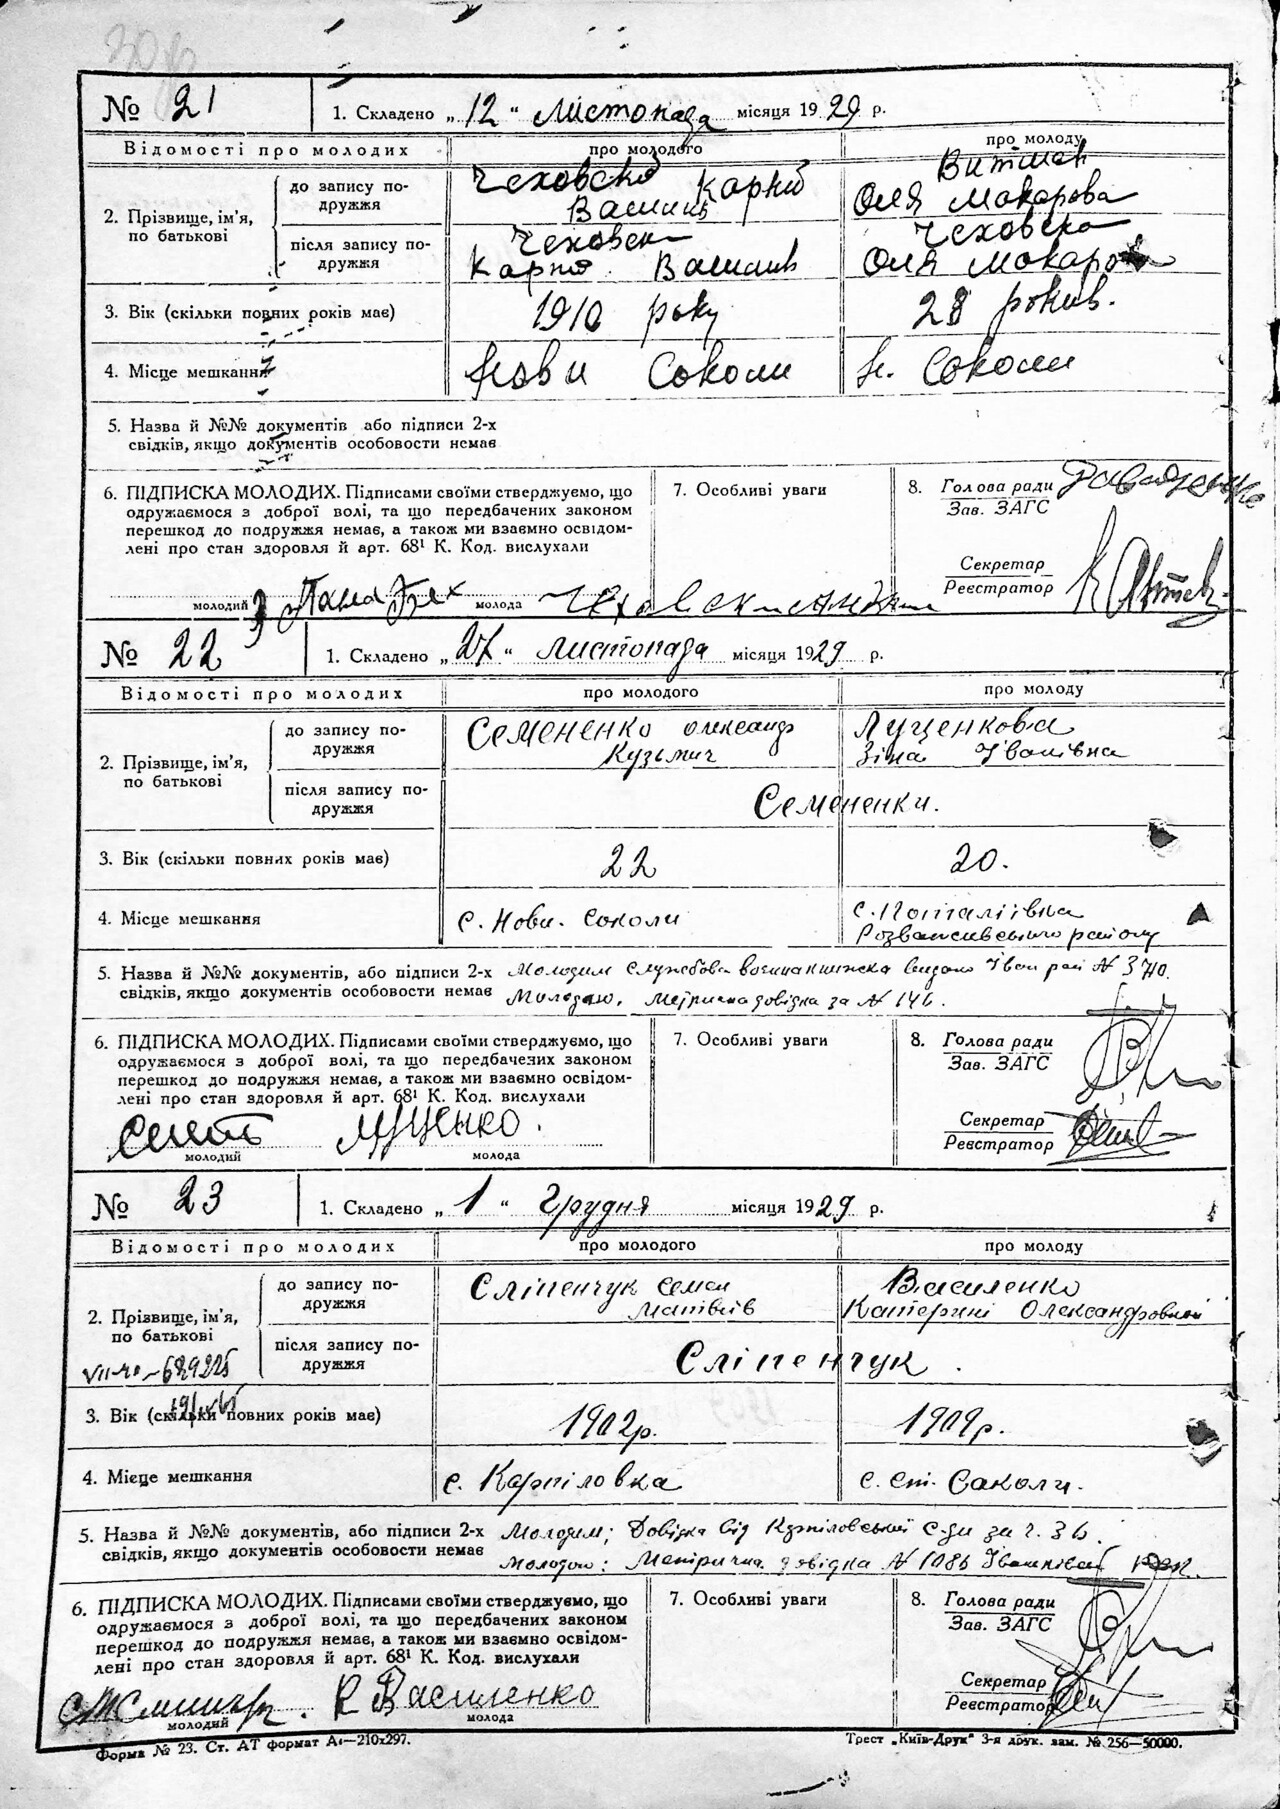 № 21
1. Складено „ 12 “ Листопада місяця 1929 р.
Відомості про молодих
про молодого
про молоду
2. Прізвище, ім'я,
по батькові
до запису по-
дружжя
Карпо
Василів
Витман
Оля Макарова
після запису по-
дружжя
Карпо Василів
Чеховска
Оля Макарова
3. Вік (скільки повних років має)
1910 року
28 років.
4. Місце мешкання
Нови Соколи
н. Соколи
5. Назва й №№ документів або підписи 2-х
свідків, якщо документів особовости немає
6. ПІДПИСКА МОЛОДИХ. Підписами своїми стверджуємо, що
одружаємося з доброї волі, та що передбачених законом
перешкод до подружжя немає, а також ми взаємно освідом-
лені про стан здоровля й арт. 68¹ К. Код. вислухали
7. Особливі уваги
8. Голова ради
Зав. ЗАГС
Секретар
Реєстратор
молодий
молода
№ 22
1. Складено „ 27 “ листопада місяця 1929 р.
Відомості про молодих
про молодого
про молоду
2. Прізвище, ім'я,
по батькові
до запису по-
дружжя
Семененко Олександр
Кузьмич
Луценкова
Зіна Іванівна
після запису по-
дружжя
Семененки.
3. Вік (скільки повних років має)
22
20.
4. Місце мешкання
с. Нови. Соколи
с.
Розважевського району
5. Назва й №№ документів, або підписи 2-х
свідків, якщо документів особовости немає
Молодим Службова видано Іван рай N 370.
Молодою, метрична довідка за N 146.
6. ПІДПИСКА МОЛОДИХ. Підписами своїми стверджуємо, що
одружаємося з доброї волі, та що передбачених законом
перешкод до подружжя немає, а також ми взаємно освідом-
лені про стан здоровля й арт. 68¹ К. Код. вислухали
7. Особливі уваги
8. Голова ради
Зав. ЗАГС
Секретар
Реєстратор
Луценко.
молодий
молода
№ 23
1. Складено „ 1 “ Грудня місяця 1929 р.
Відомості про молодих
про молодого
про молоду
2. Прізвище, ім'я,
по батькові
до запису по-
дружжя
Сліпенчук Семен
Матвіїв
Василенко
Катерині Олександровной
після запису по-
дружжя
Сліпенчук.
3. Вік (скільки повних років має)
1902р.
1909р.
4. Місце мешкання
с. Карпіловка
с. ст. Саколи.
5. Назва й №№ документів, або підписи 2-х
свідків, якщо документів особовости немає
Молодим; Довідка від Карпіловської с-ди за ч. 36.
Молодою: Метрична довідка N 1086
6. ПІДПИСКА МОЛОДИХ. Підписами своїми стверджуємо, що
одружаємося з доброї волі, та що передбачених законом
перешкод до подружжя немає, а також ми взаємно освідом-
лені про стан здоровля й арт. 68¹ К. Код. вислухали
7. Особливі уваги
8. Голова ради
Зав. ЗАГС
Секретар
Реєстратор
К Василенко
молодий
молода
Форма № 23. Ст. АТ формат А₄—210х297.
Трест „Київ-Друк“ 3-я друк. зам. № 256—50000.